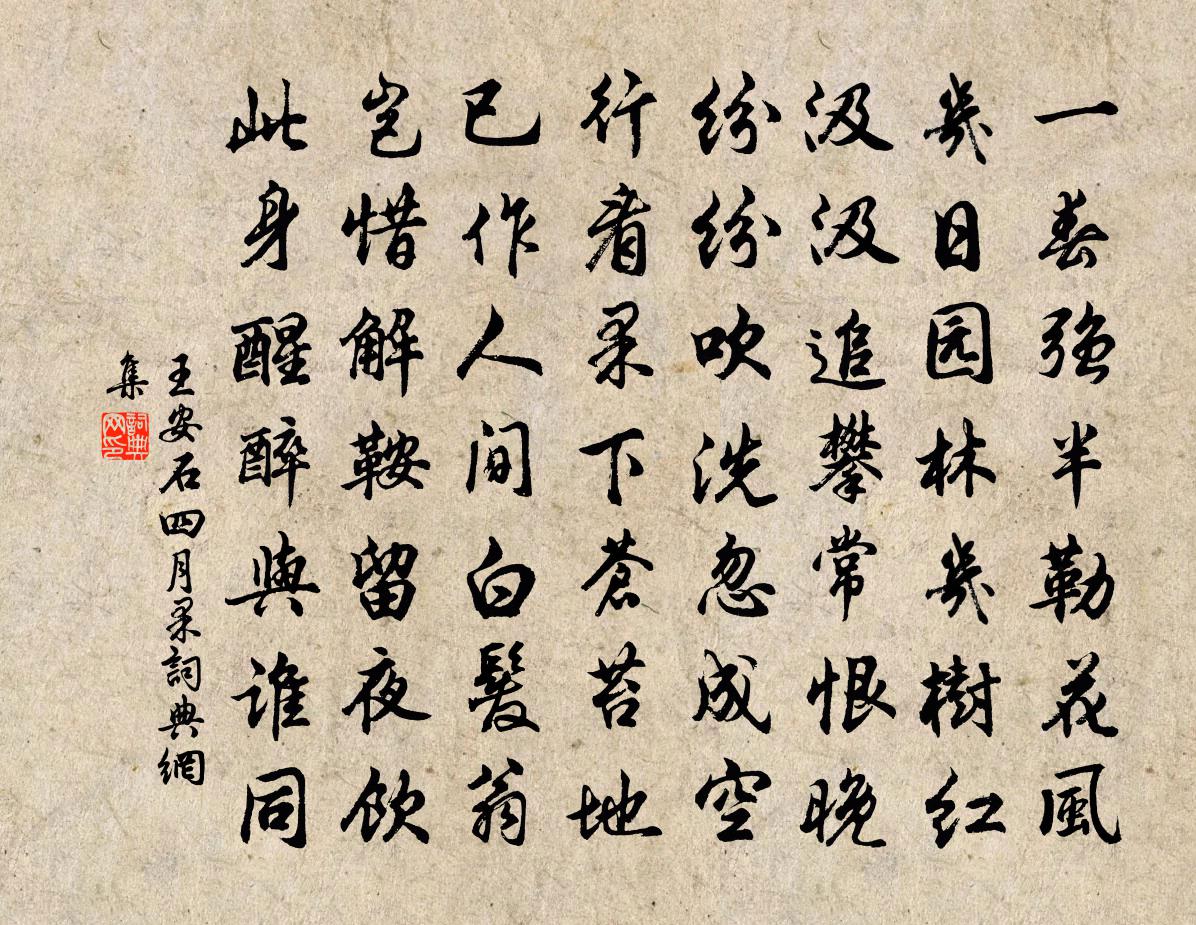 一春強半勒花風
幾日园林幾樹紅
汲汲追攀常恨晚
紛紛吹洗忽成空
行看果下蒼苔地
已作人間白髮翁
豈惜解鞍留夜飲
此身醒醉與誰同
王安石四月果詞典網
集
詞典
网印